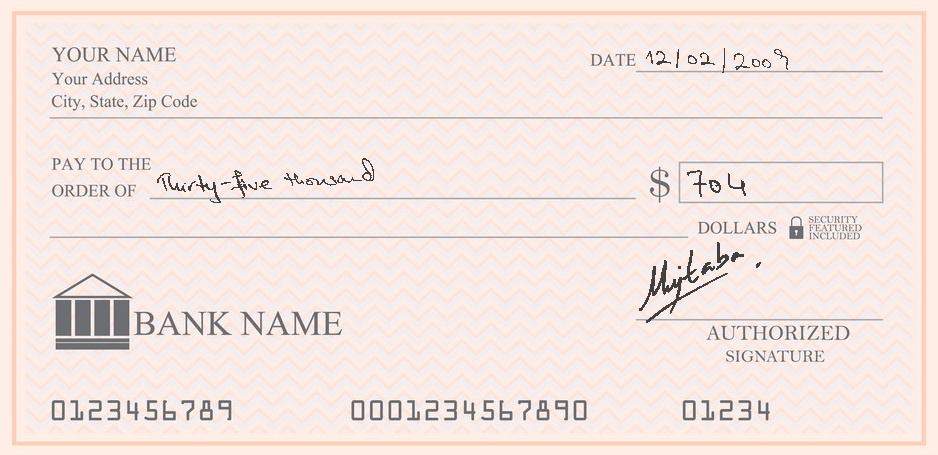 YOUR NAME
Your Address
City, State, Zip Code
DATE 12/02/2009
PAY TO THE
ORDER OF Thirty-five thousand $ 704
DOLLARS
SECURITY
FEATURED
INCLUDED
Mujtaba.
BANK NAME
AUTHORIZED
SIGNATURE
0123456789 0001234567890 01234